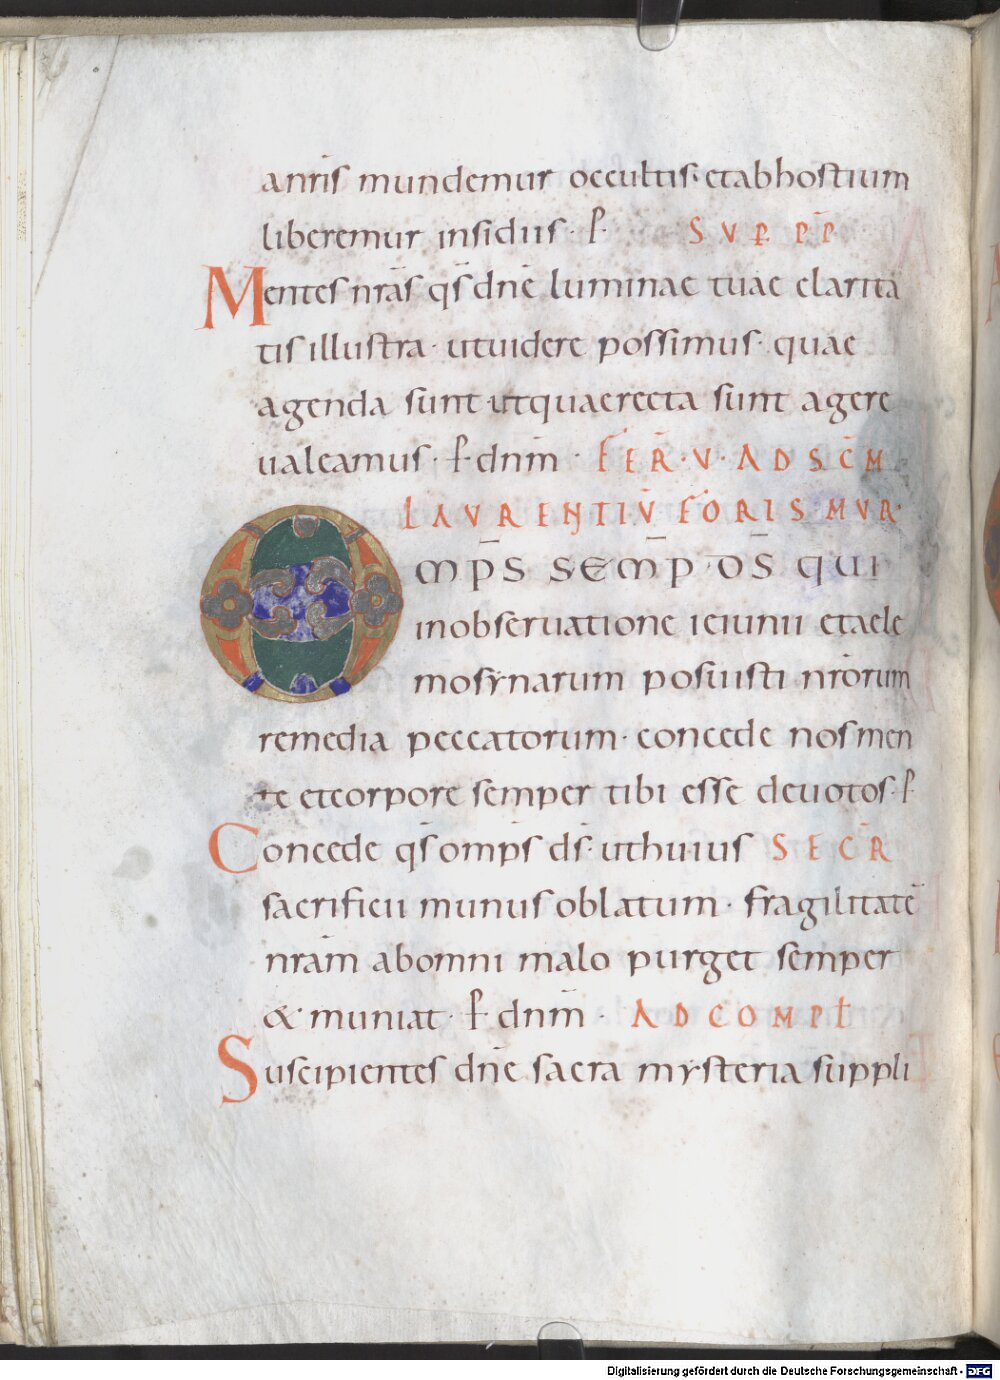 anr̄is mundemur occultis· et ab hostium
liberemur insidiis · P̱ · SVP̱ P̄P̄
Mentes nr̄as qs̄ dn̄e luminae tuae clarita
tis illustra· ut uidere possimus· quae
agenda sunt ut quae recta sunt agere
ualeamus · P̱ dn̄m · FER̄·V· AD SC̄M
LAVRENTIV̄ FORIS MVR·
OMP̄S SEMP̄ DS̄ QUI
in obseruatione ieiunii et aele
mosynarum posuisti nr̄orum
remedia peccatorum· concede nos men
te et corpore semper tibi esse deuotos· P̱
Concede qs̄ omp̄s ds̄· ut huius SECR̄
sacrificii munus oblatum · fragilitatē
nr̄am ab omni malo purget semper
& muniat · P̱ dn̄m · AD COMPŁ
Suscipientes dn̄e sacra mysteria suppli
Digitalisierung gefördert durch die Deutsche Forschungsgemeinschaft - DFG